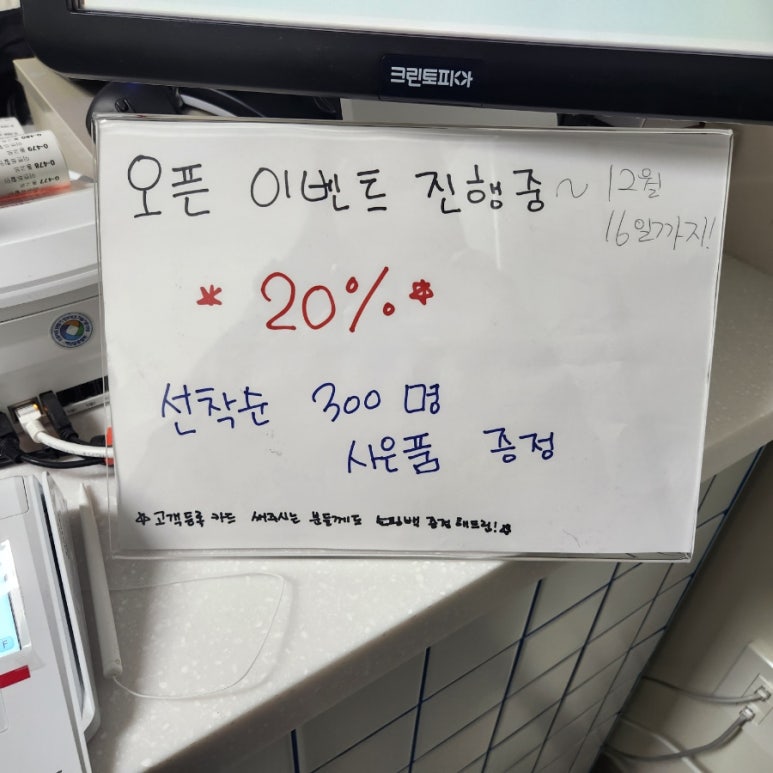 크린토피아
오픈 이벤트 진행중 ~ 12월
16일까지!
* 20% *
선착순 300명
사은품 증정
☆ 고객등록 카드 써주시는 분들께도 증정해드림! ☆
0-479
0-478
0-477
F